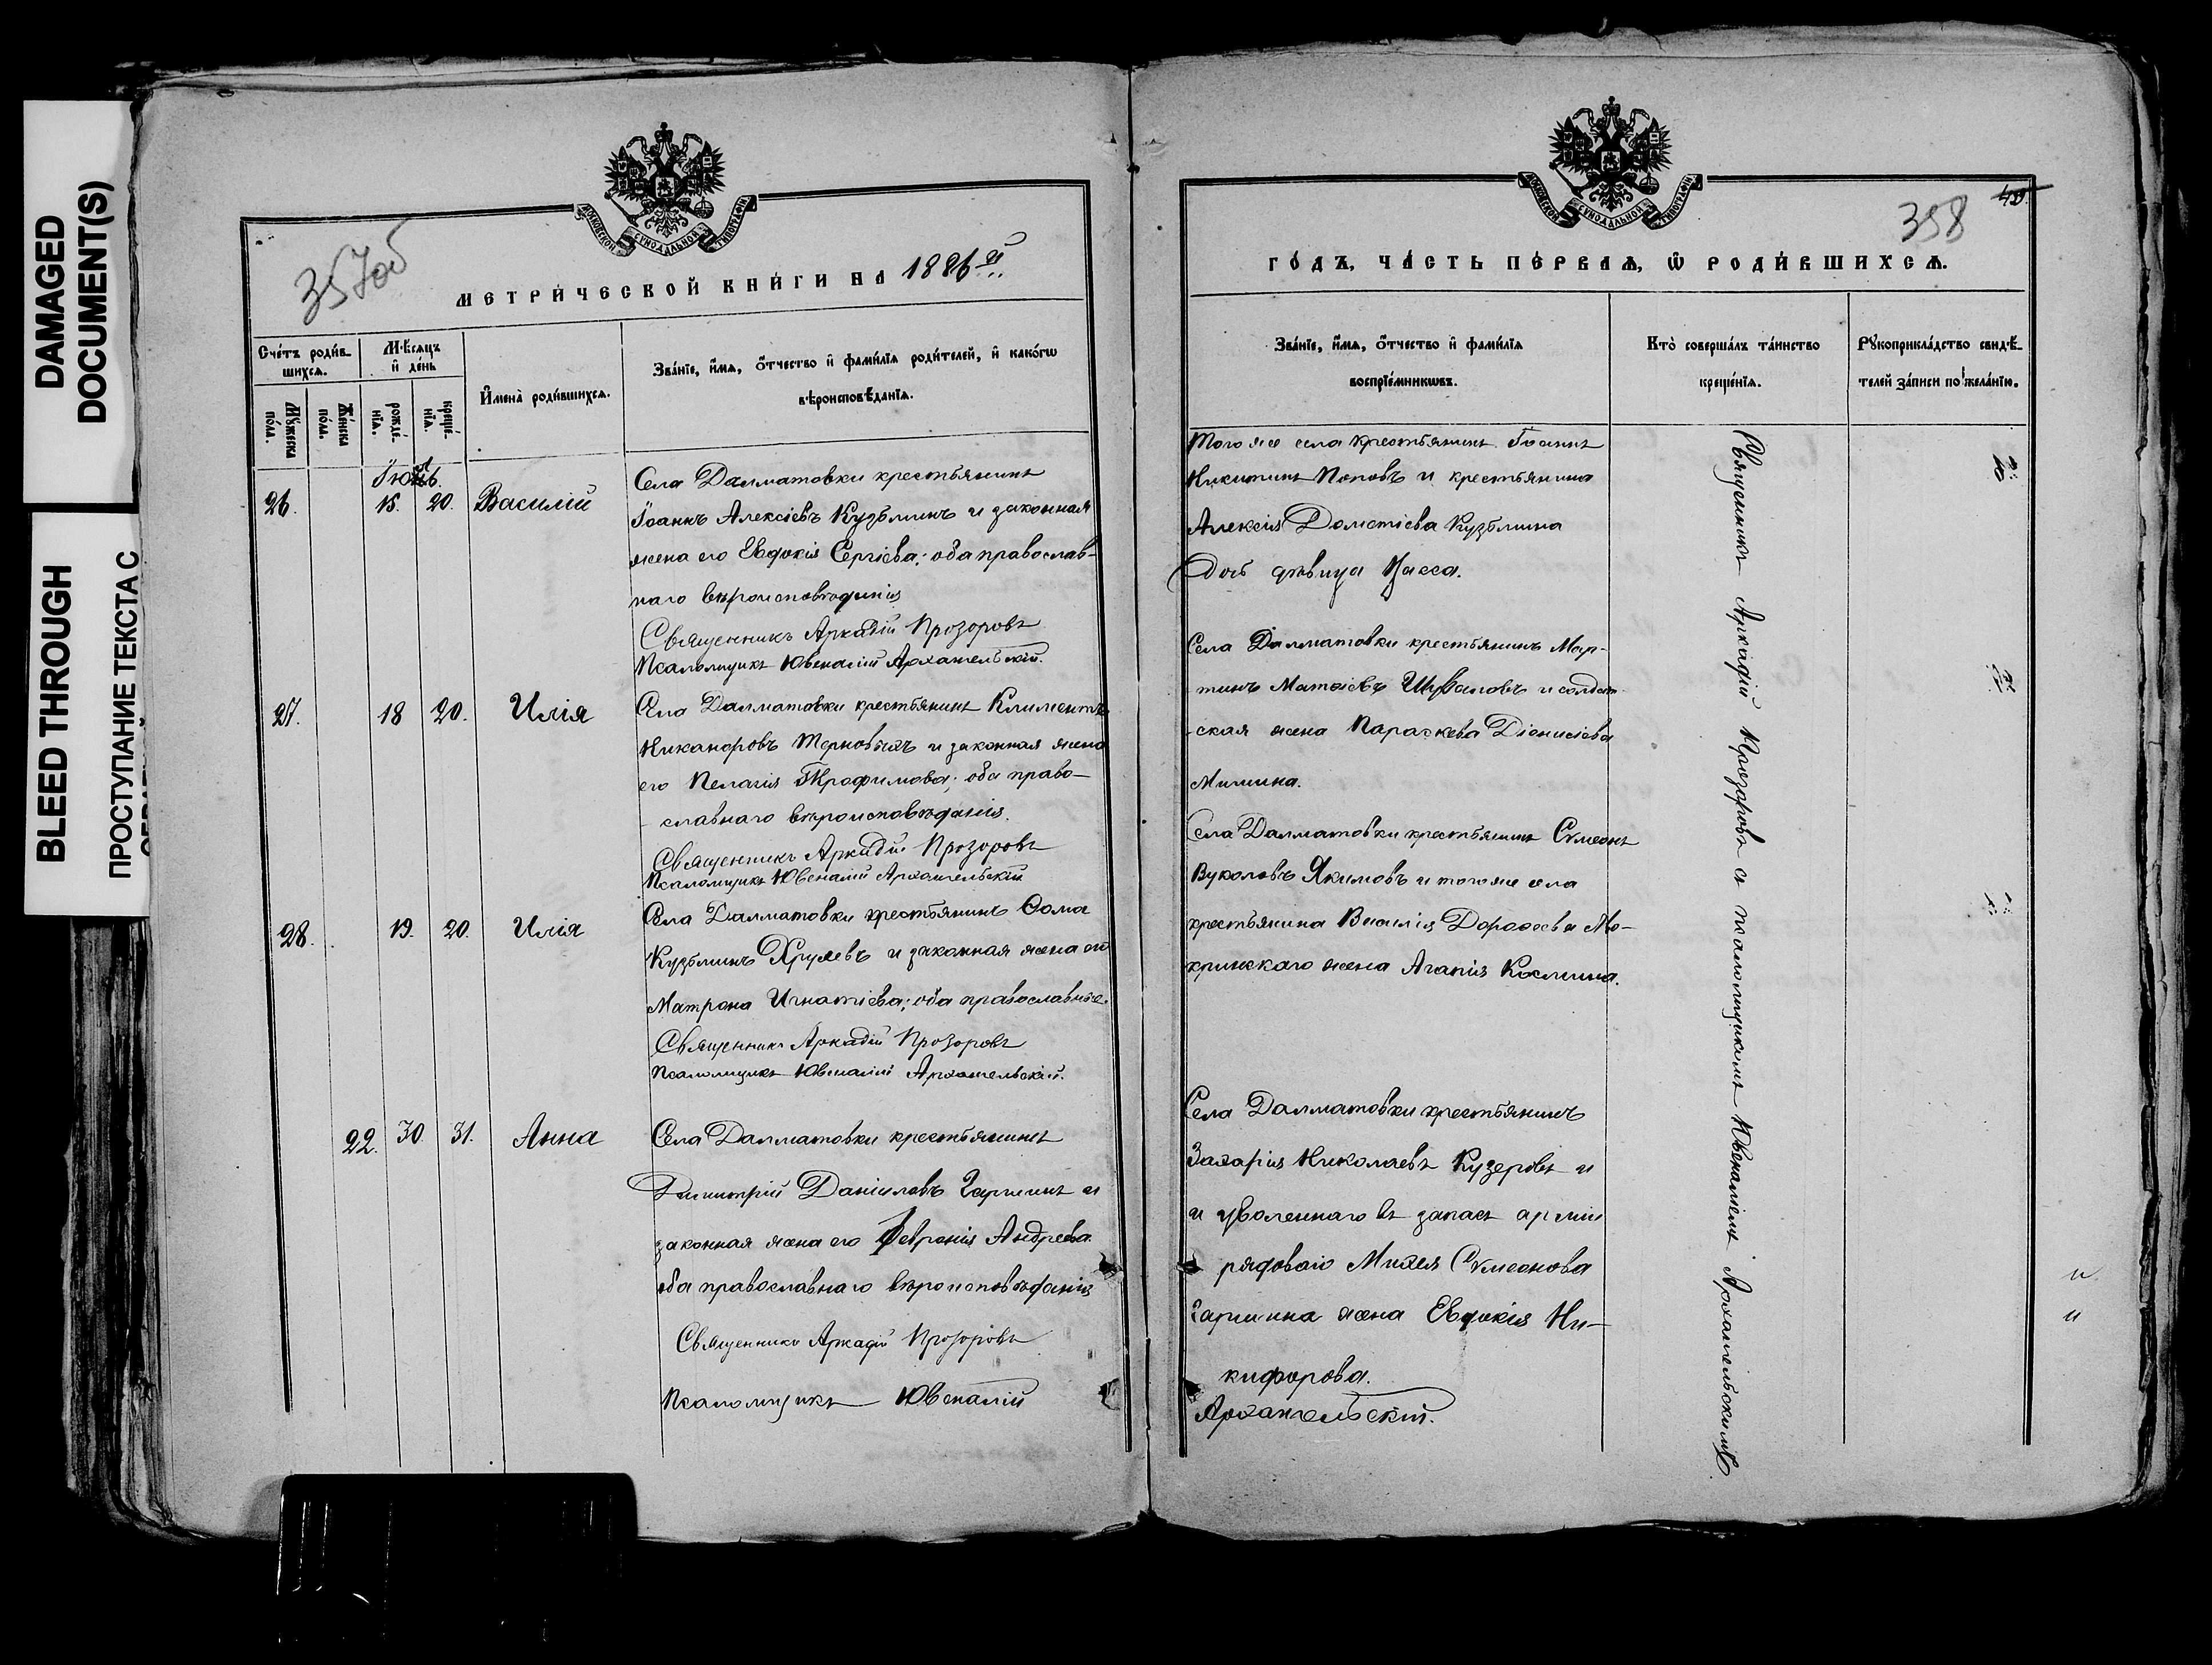 DAMAGED
DOCUMENT(S)
BLEED THROUGH
ПРОСТУПАНИЕ ТЕКСТА С
МОСКОВСКОЙ СУНОДАЛЬНОЙ ТИПОГРАФІИ
357об
МЕТРИЧЕСКОЙ КНИГИ НА 1886й
Счетъ родив-
шихся.
Мѣсяцъ
и день
Мужеска
пола.
Женска
пола.
рожде-
нія.
креще-
нія.
Имена родившихся.
Званіе, имя, отчество и фамилія родителей, и какогѡ
вѣроисповѣданія.
Іюль.
26. 15. 20. Василій
Села Далматовки крестьянинъ
Іоаннъ Алексіевъ Кузьминъ и законная
жена его Евдокія Сергіева; оба православ-
наго вѣроисповѣданія
Священникъ Аркадій Прозоровъ
Псаломщикъ Ювеналій Архангельскій.
27. 18 20. Илія
Села Далматовки крестьянинъ Климентъ
Никаноровъ Терновыхъ и законная жена
его Пелагія Трофимова; оба право-
славнаго вѣроисповѣданія.
Священникъ Аркадій Прозоровъ
Псаломщикъ Ювеналій Архангельскій
28. 19. 20. Илія
Села Далматовки крестьянинъ Ѳома
Кузьминъ и законная жена его
Матрона Игнатіева; оба православные.
Священникъ Аркадій Прозоровъ
Псаломщикъ Ювеналій Архангельскій.
22. 30. 31. Анна
Села Далматовки крестьянинъ
Димитрій Даніиловъ Гаршинъ и
законная жена его Февронія Андреева
оба православнаго вѣроисповѣданія
Священникъ Аркадій Прозоровъ
Псаломщикъ Ювеналій
МОСКОВСКОЙ СУНОДАЛЬНОЙ ТИПОГРАФІИ
358
ГОДЪ, ЧАСТЬ ПЕРВАЯ, Ѡ РОДИВШИХСЯ.
Званіе, имя, отчество и фамилія
воспріемниковъ.
Кто совершалъ таинство
крещенія.
Рукоприкладство свидѣ-
телей записи по желанію.
Того же села крестьянинъ Іоаннъ
Никитинъ Поповъ и крестьянина
Алексія Дометіева Кузьмина
дочь дѣвица Васса.
Села Далматовки крестьянинъ Мар-
тинъ Матѳіевъ Шуваловъ и солдат-
ская жена Параскева Діонисіева
Мишина.
Села Далматовки крестьянинъ Сѵмеонъ
Вуколовъ Якимовъ и того же села
крестьянина Василія Дороѳеева Мо-
кринскаго жена Агапія Косьмина.
Села Далматовки крестьянинъ
Захарія Николаевъ Кузеровъ и
и уволеннаго въ запасъ арміи
рядоваго Михея Сѵмеонова
Гаршина жена Евдокія Ни-
кифорова.
Архангельскій.
Священникъ Аркадій Прозоровъ съ псаломщикомъ Ювеналіемъ Архангельскимъ.